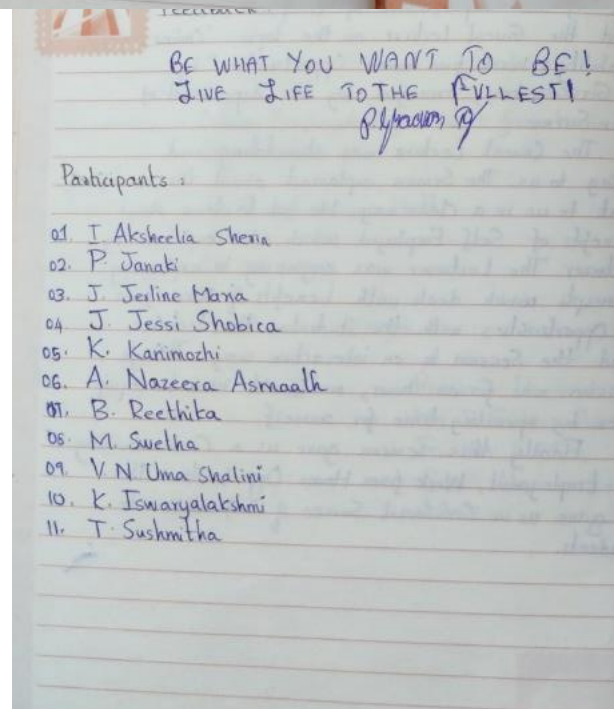 BE WHAT YOU WANT TO BE!
LIVE LIFE TO THE FULLEST!
Participants :
01. I. Aksheelia Sheria
02. P. Janaki
03. J. Jerline Maria
04. J. Jessi Shobica
05. K. Kanimozhi
06. A. Nazeera Asmaalh
07. B. Reethika
08. M. Swetha
09. V. N. Uma Shalini
10. K. Iswaryalakshmi
11. T. Sushmitha